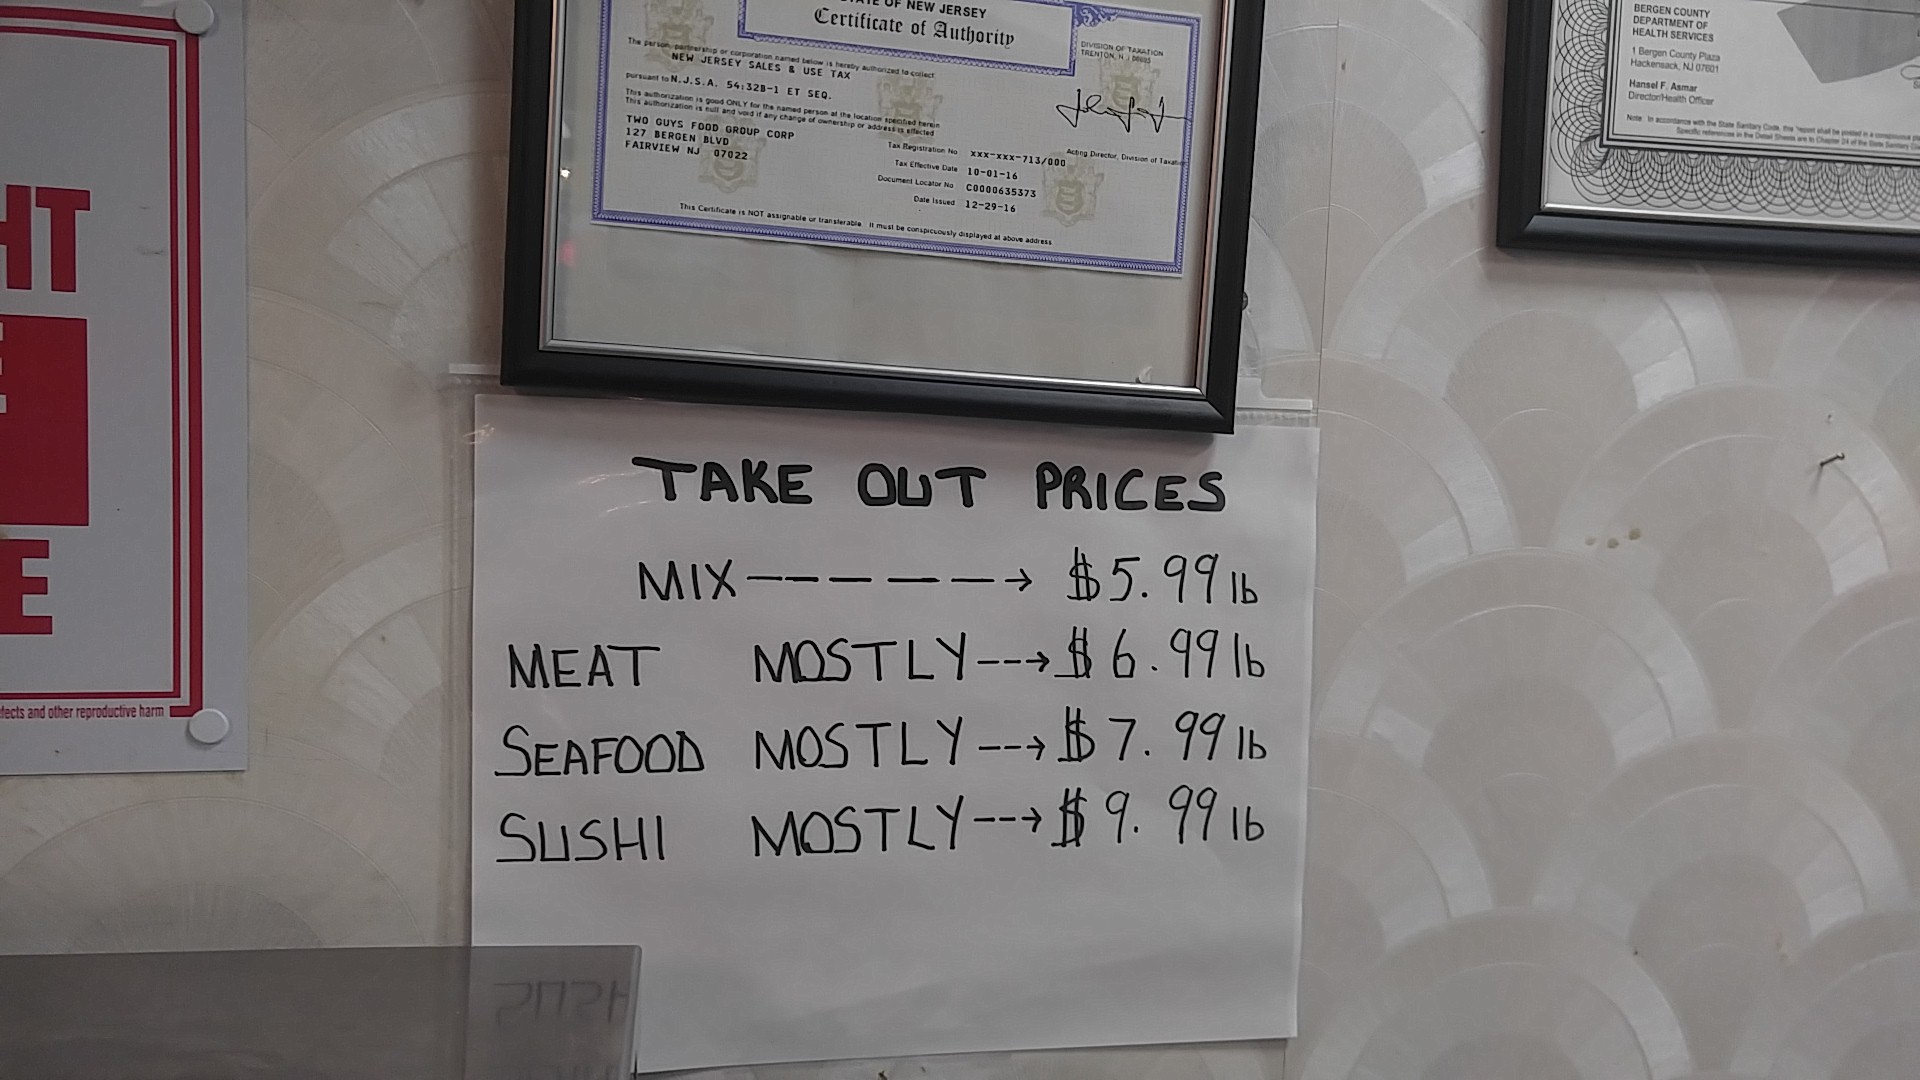 HT
E
fects and other reproductive harm
STATE OF NEW JERSEY
Certificate of Authority
DIVISION OF TAXATION
TRENTON, N J 08695
The person, partnership or corporation named below is hereby authorized to collect
NEW JERSEY SALES & USE TAX
pursuant to N.J.S.A. 54:32B-1 ET SEQ.
This authorization is good ONLY for the named person at the location specified herein
This authorization is null and void if any change of ownership or address is effected
TWO GUYS FOOD GROUP CORP
127 BERGEN BLVD
FAIRVIEW NJ 07022
Acting Director, Division of Taxation
Tax Registration No xxx-xxx-713/000
Tax Effective Date 10-01-16
Document Locator No C0000635373
Date Issued 12-29-16
This Certificate is NOT assignable or transferable. It must be conspicuously displayed at above address
BERGEN COUNTY
DEPARTMENT OF
HEALTH SERVICES
1 Bergen County Plaza
Hackensack, NJ 07601
Hansel F. Asmar
Director/Health Officer
Note: In accordance with the State Sanitary Code, this report shall be posted in a conspicuous
Specific references in the Detail Sheets are to Chapter 24 of the State Sanitary
TAKE OUT PRICES
MIX------> $5.99 lb
MEAT MOSTLY---> $6.99 lb
SEAFOOD MOSTLY---> $7.99 lb
SUSHI MOSTLY---> $9.99 lb